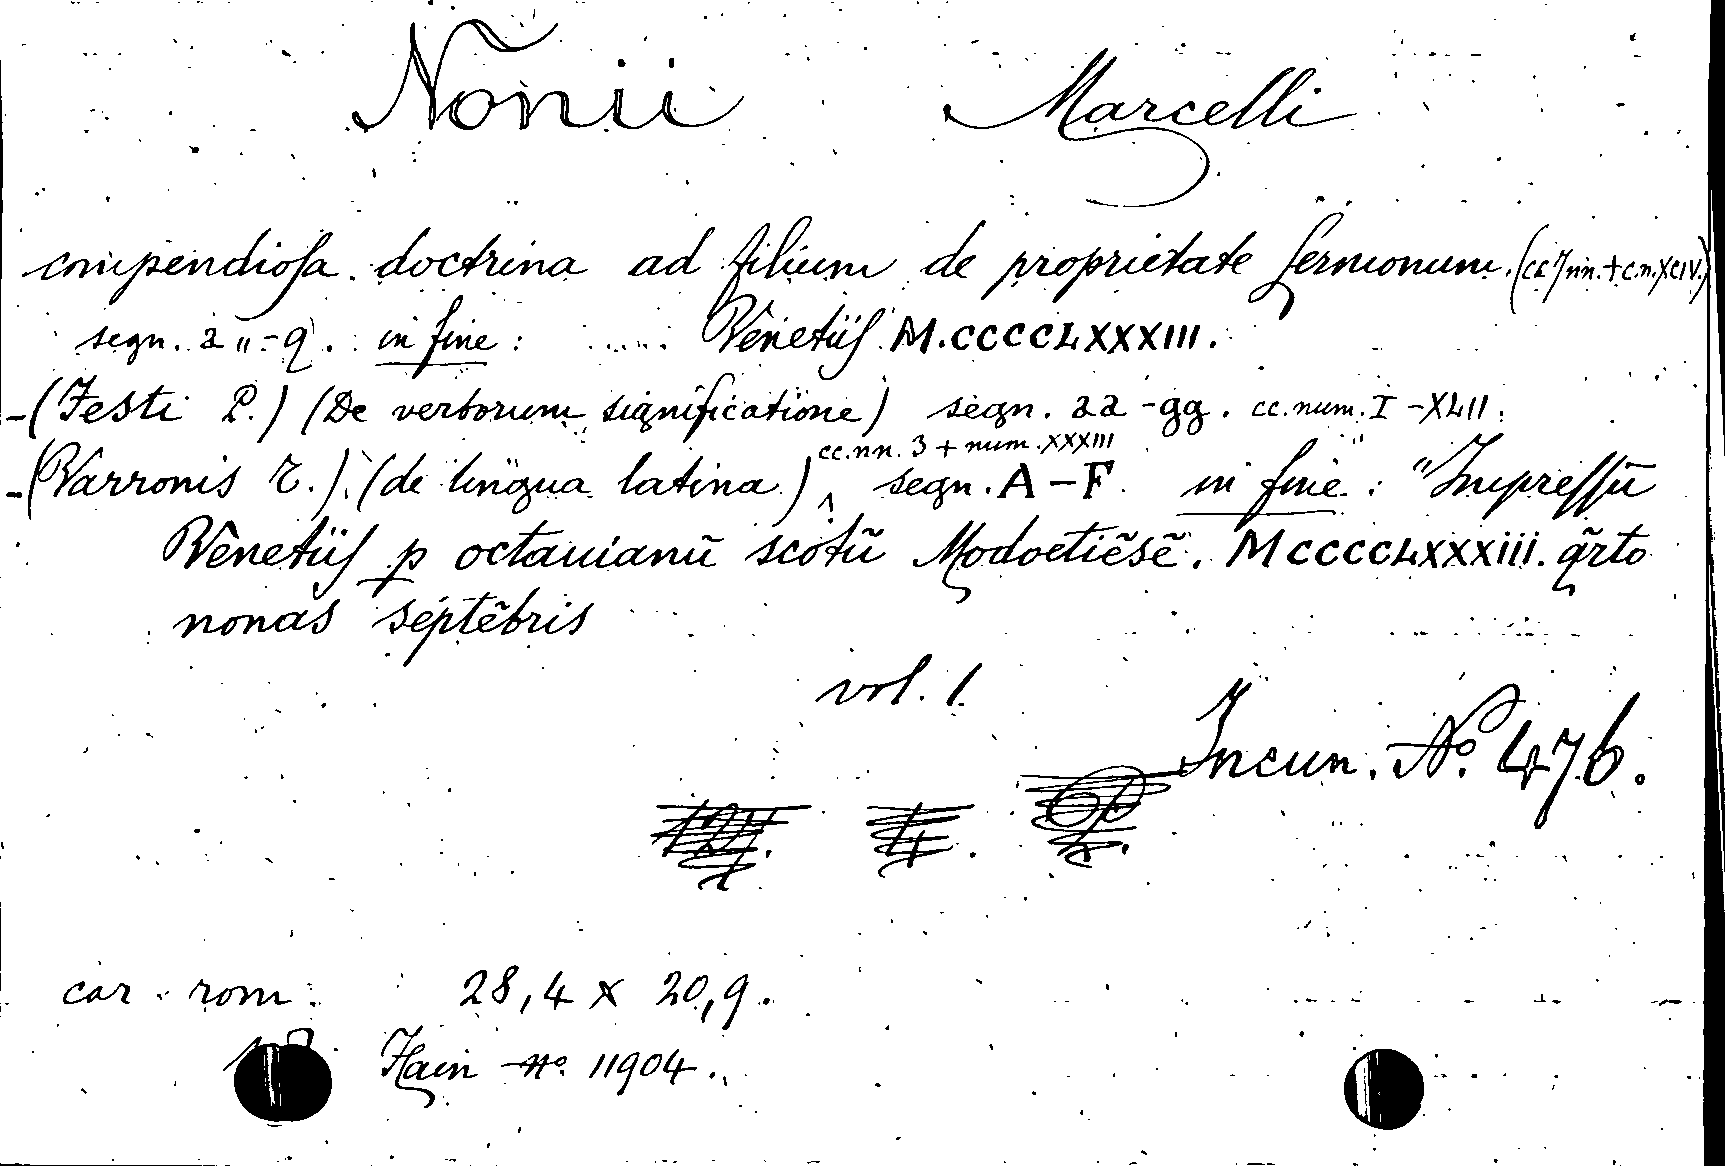 Nonii Marcelli
compendiosa doctrina ad filium de proprietate sermonum. (cc 7 nn. + c.n. XCIV.)
segn. a ıı - q. in fine: ..... Venetiis M.CCCCLXXXIII.
-(Festi P.) (De verborum significatione) segn. aa - gg. cc. num. I - XLII.
cc. nn. 3 + num. XXXIII
-(Varronis T.) (de lingua latina) segn. A - F in fine: "Impressū
Venetiis p octauianū scotū Modoetiēsē. MCCCCLXXXIII. qrto
nonas septēbris
vol. 1.
Incun. No. 476.
car. rom. 28,4 x 20,9.
Hain no. 11904.